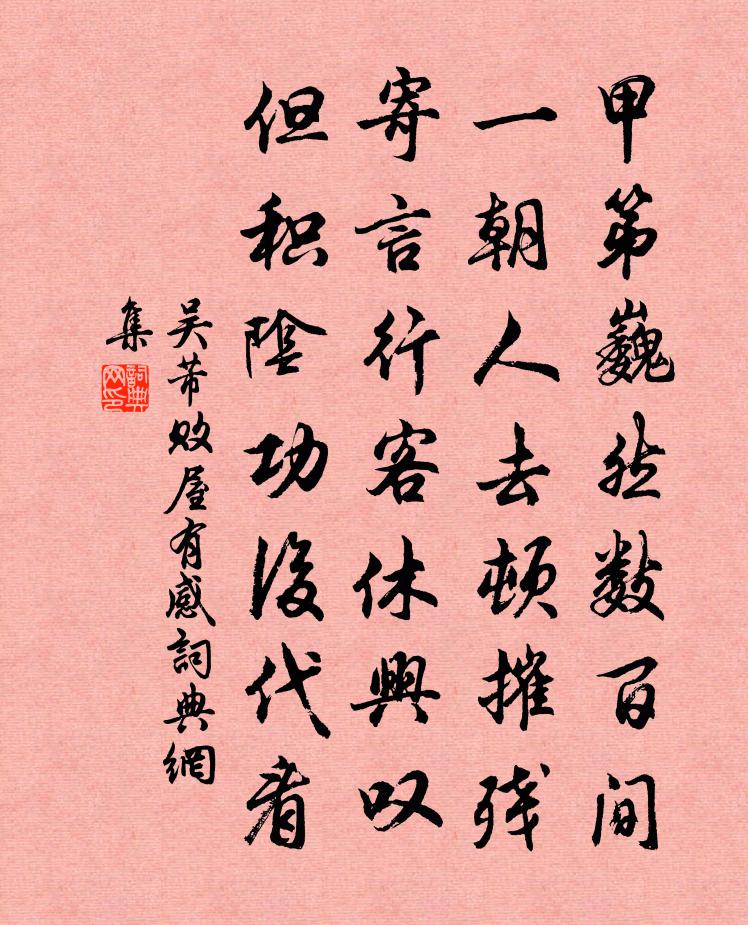 甲第巍然数百间
一朝人去顿摧残
寄言行客休興叹
但积陰功後代看
吴芾败屋有感詞典網
集
詞典网印